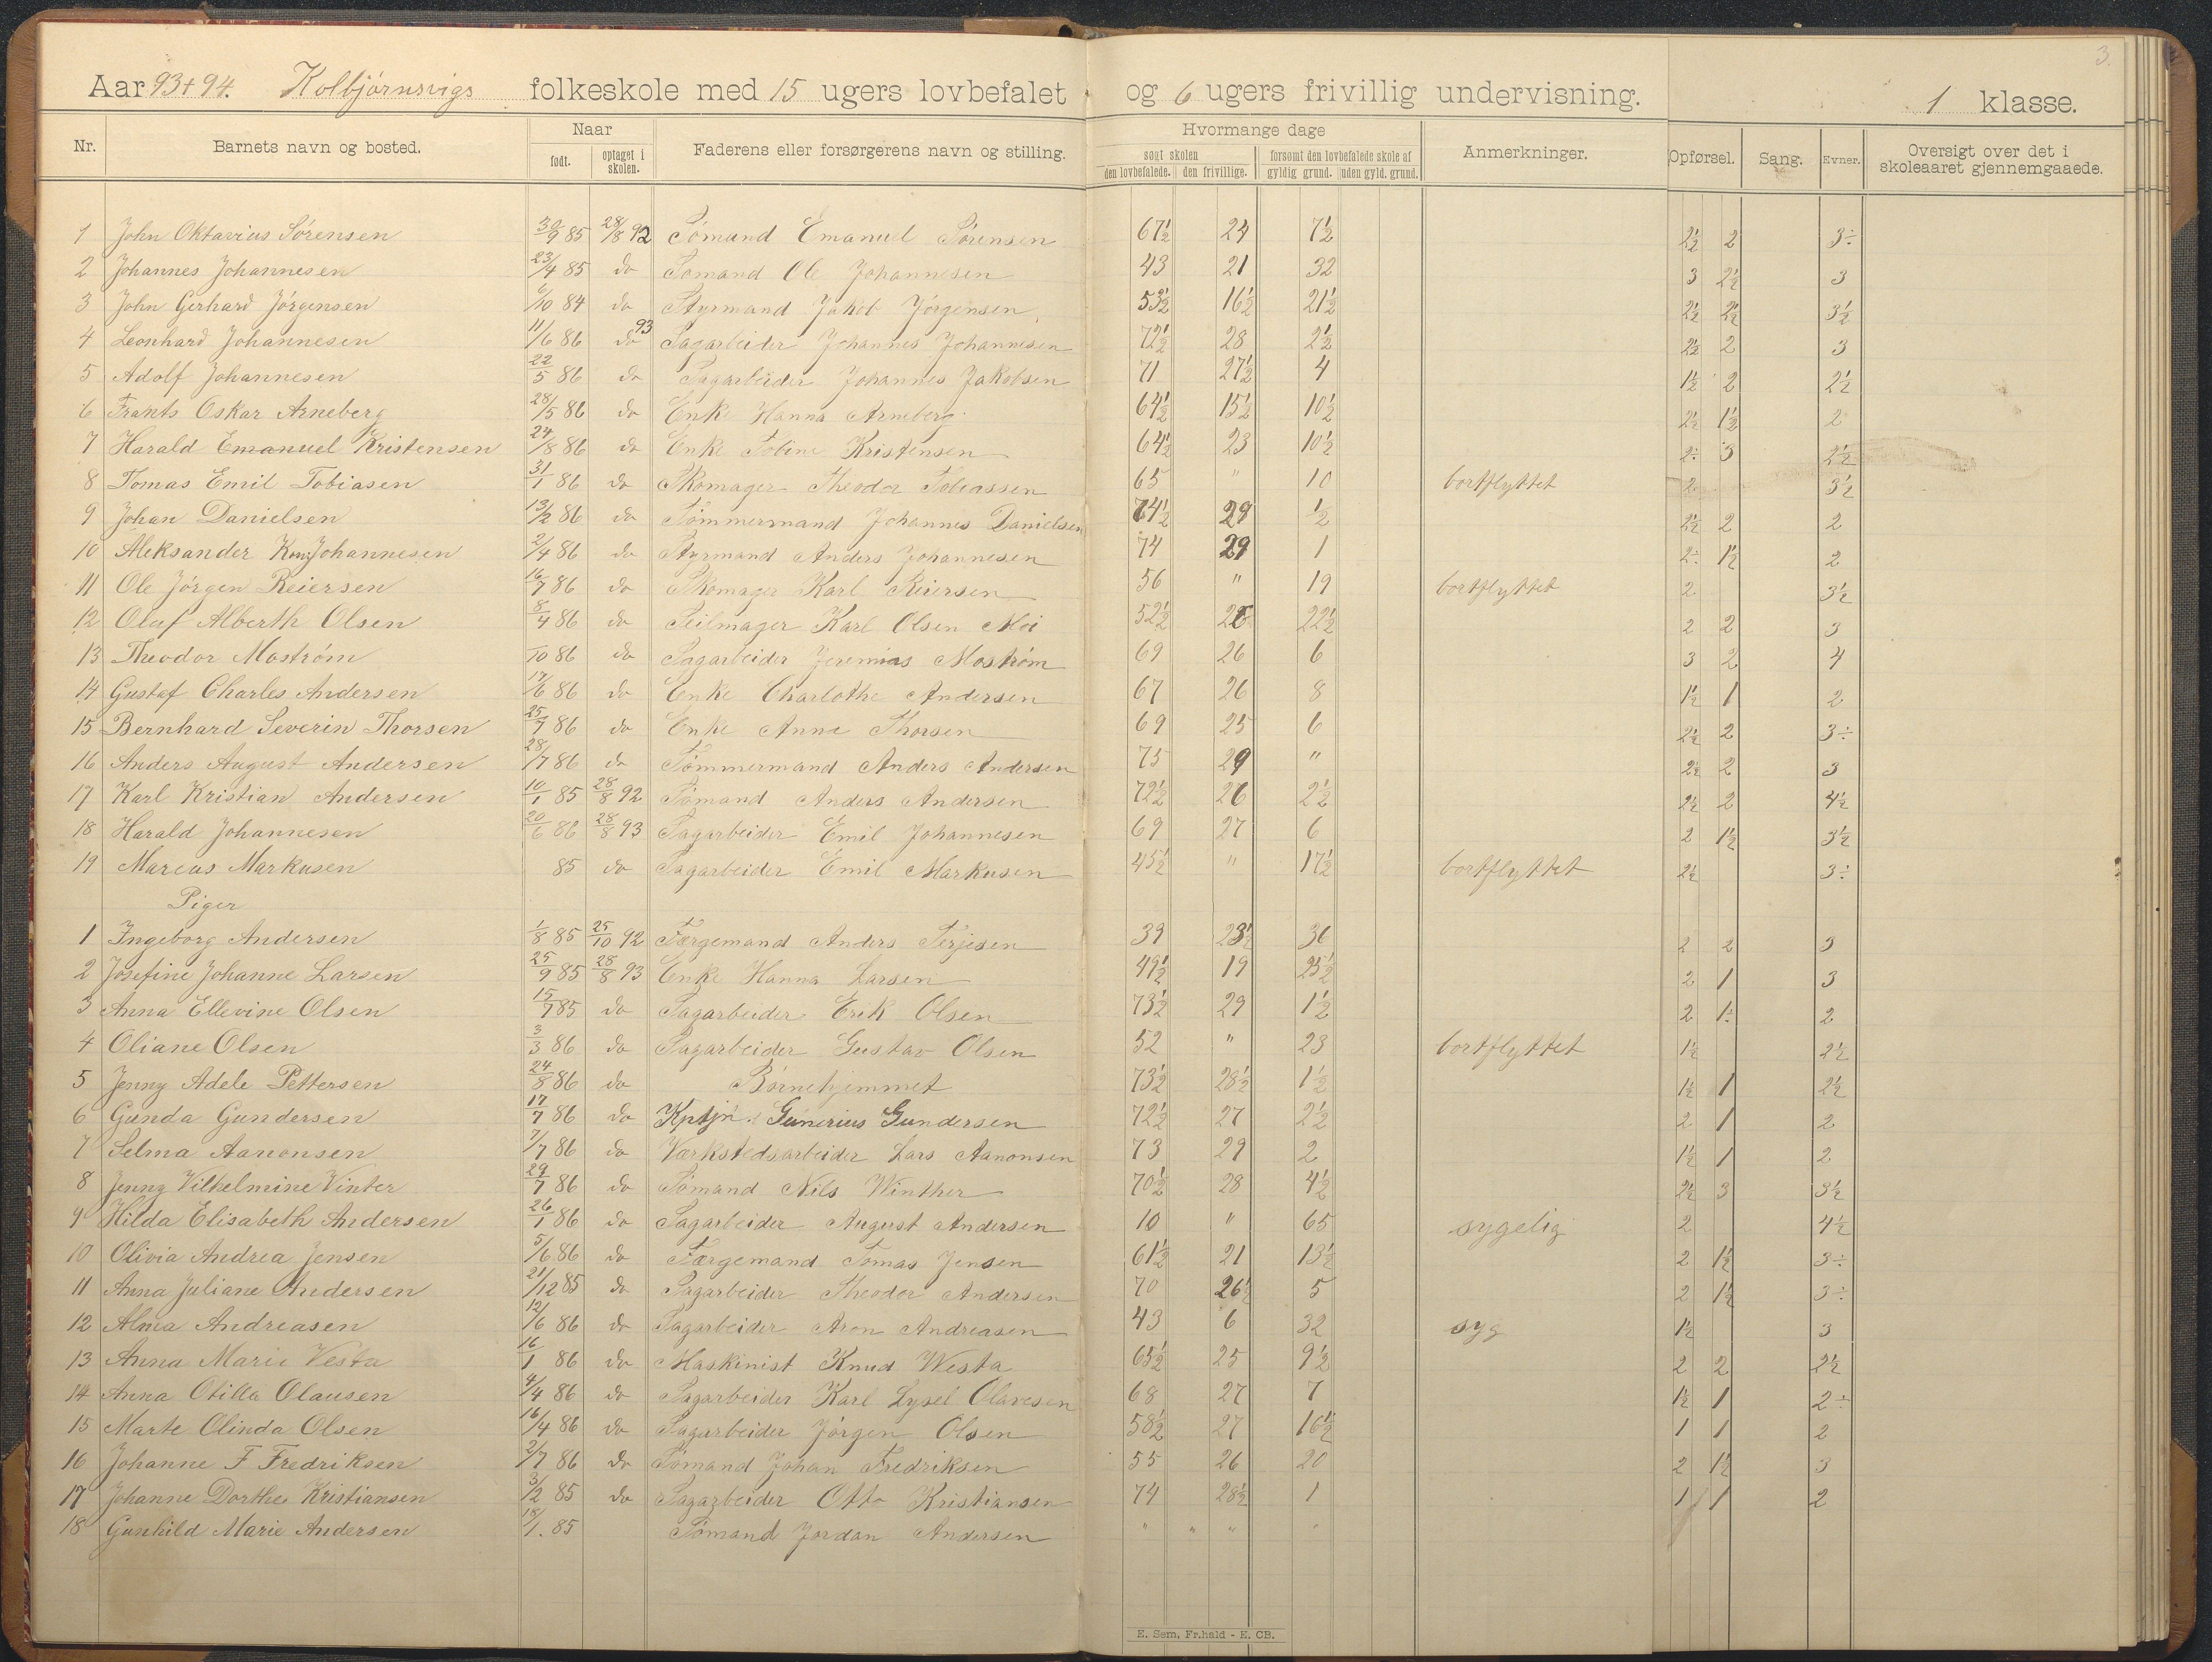 3.
Aar 93+94. Kolbjørnsvigs folkeskole med 15 ugers lovbefalet og 6 ugers frivillig undervisning. 1 klasse.
Nr. Barnets navn og bosted. Naar født. optaget i skolen. Faderens eller forsørgerens navn og stilling. Hvormange dage søgt skolen den lovbefalede. den frivillige. forsømt den lovbefalede skole af gyldig grund. uden gyld. grund. Anmerkninger. Opførsel. Sang. Evner. Oversigt over det i skoleaaret gjennemgaaede.
1 John Oktavius Sørensen 30/9 85 28/8 92 Sømand Emanuel Sørensen 67½ 24 7½ 2½ 2 3÷
2 Johannes Johannesen 23/4 85 do Sømand Ole Johannesen 43 21 32 3 2½ 3
3 John Gerhard Jørgensen 6/10 84 do Styrmand Jakob Jørgensen 53½ 16½ 21½ 2½ 2½ 3½
4 Leonhard Johannesen 11/6 86 do 93 Sagarbeider Johannes Johannesen 72½ 28 2½ 2½ 2 3
5 Adolf Johannesen 22/5 86 do Sagarbeider Johannes Jakobsen 71 27½ 4 1½ 2 2½
6 Frants Oskar Arneberg 28/5 86 do Enke Hanna Arneberg 64½ 15½ 10½ 2½ 1½ 2
7 Harald Emanuel Kristensen 24/8 86 do Enke Tobine Kristensen 64½ 23 10½ 2÷ 3 2½
8 Tomas Emil Tobiasen 31/1 86 do Skomager Theodor Tobiassen 65 " 10 bortflyttet 2 3½
9 Johan Danielsen 13/2 86 do Tømmermand Johannes Danielsen 74½ 29 ½ 2½ 2 2
10 Aleksander Johannesen 2/4 86 do Styrmand Anders Johannesen 74 29 1 2÷ 1½ 2
11 Ole Jørgen Reiersen 16/7 86 do Skomager Karl Reiersen 56 " 19 bortflyttet 2 3½
12 Oluf Alberth Olsen 8/4 86 do Seilmager Karl Olsen Moi 52½ 22½ 2 2 3
13 Theodor Moström /10 86 do Sagarbeider Jeremias Moström 69 26 6 3 2 4
14 Gustaf Charles Andersen 17/6 86 do Enke Charlothe Andersen 67 26 8 1½ 1 2
15 Bernhard Severin Thorsen 25/7 86 do Enke Anne Thorsen 69 25 6 2½ 2 3÷
16 Anders August Andersen 28/7 86 do Tømmermand Anders Andersen 75 29 " 2½ 2 3
17 Karl Kristian Andersen 10/1 85 28/8 92 Sømand Anders Andersen 72½ 26 2½ 2½ 2 4½
18 Harald Johannesen 20/6 86 28/8 93 Sagarbeider Emil Johannesen 69 27 6 2 1½ 3½
19 Marcus Markusen 85 do Sagarbeider Emil Markusen 45½ " 17½ bortflyttet 2½ 3÷
Piger
1 Ingeborg Andersen 1/8 85 25/10 92 Færgemand Anders Terjesen 39 23½ 36 2 2 3
2 Josefine Johanne Larsen 25/9 85 28/8 93 Enke Hanna Larsen 49½ 19 25½ 2 1 3
3 Anna Ellevine Olsen 15/7 85 do Sagarbeider Erik Olsen 73½ 29 1½ 2 1÷ 2
4 Oliane Olsen 3/3 86 do Sagarbeider Gustav Olsen 52 " 23 bortflyttet 1½ 2½
5 Jenny Adele Pettersen 24/8 86 do Børnehjemmet 73½ 28½ 1½ 1½ 1 2½
6 Gunda Gundersen 17/7 86 do Kptjn. Gunerius Gundersen 72½ 27 2½ 2 1 2
7 Selma Aanonsen 7/7 86 do Værkstedsarbeider Lars Aanonsen 73 29 2 1½ 1 2
8 Jenny Vilhelmine Vinter 29/7 86 do Sømand Nils Winther 70½ 28 4½ 2½ 3 3½
9 Hilda Elisabeth Andersen 26/1 86 do Sagarbeider August Andersen 10 " 65 sygelig 2 4½
10 Olivia Andrea Jensen 5/6 86 do Færgemand Tomas Jensen 61½ 21 13½ 2 1½ 3÷
11 Anna Juliane Andersen 21/12 85 do Sagarbeider Theodor Andersen 70 26½ 5 2 1½ 3÷
12 Alma Andreasen 12/6 86 do Sagarbeider Aron Andreasen 43 6 32 syg 1½ 3
13 Anna Marie Vesta 16/1 86 do Maskinist Knud Westa 65½ 25 9½ 2 2 2½
14 Anna Otilla Olausen 4/4 86 do Sagarbeider Karl Lysel Olavesen 68 27 7 1½ 1 2÷
15 Marte Olinda Olsen 16/4 86 do Sagarbeider Jørgen Olsen 58½ 27 16½ 1 1 2
16 Johanne F Fredriksen 2/7 86 do Sømand Johan Fredriksen 55 26 20 2 1½ 3
17 Johanne Dorthea Kristiansen 3/2 85 do Sagarbeider Otto Kristiansen 74 28½ 1 1 1 2
18 Gunhild Marie Andersen 18/1. 85 Sømand Jordan Andersen " " " "
E. Sem, Fr.hald - E. CB.